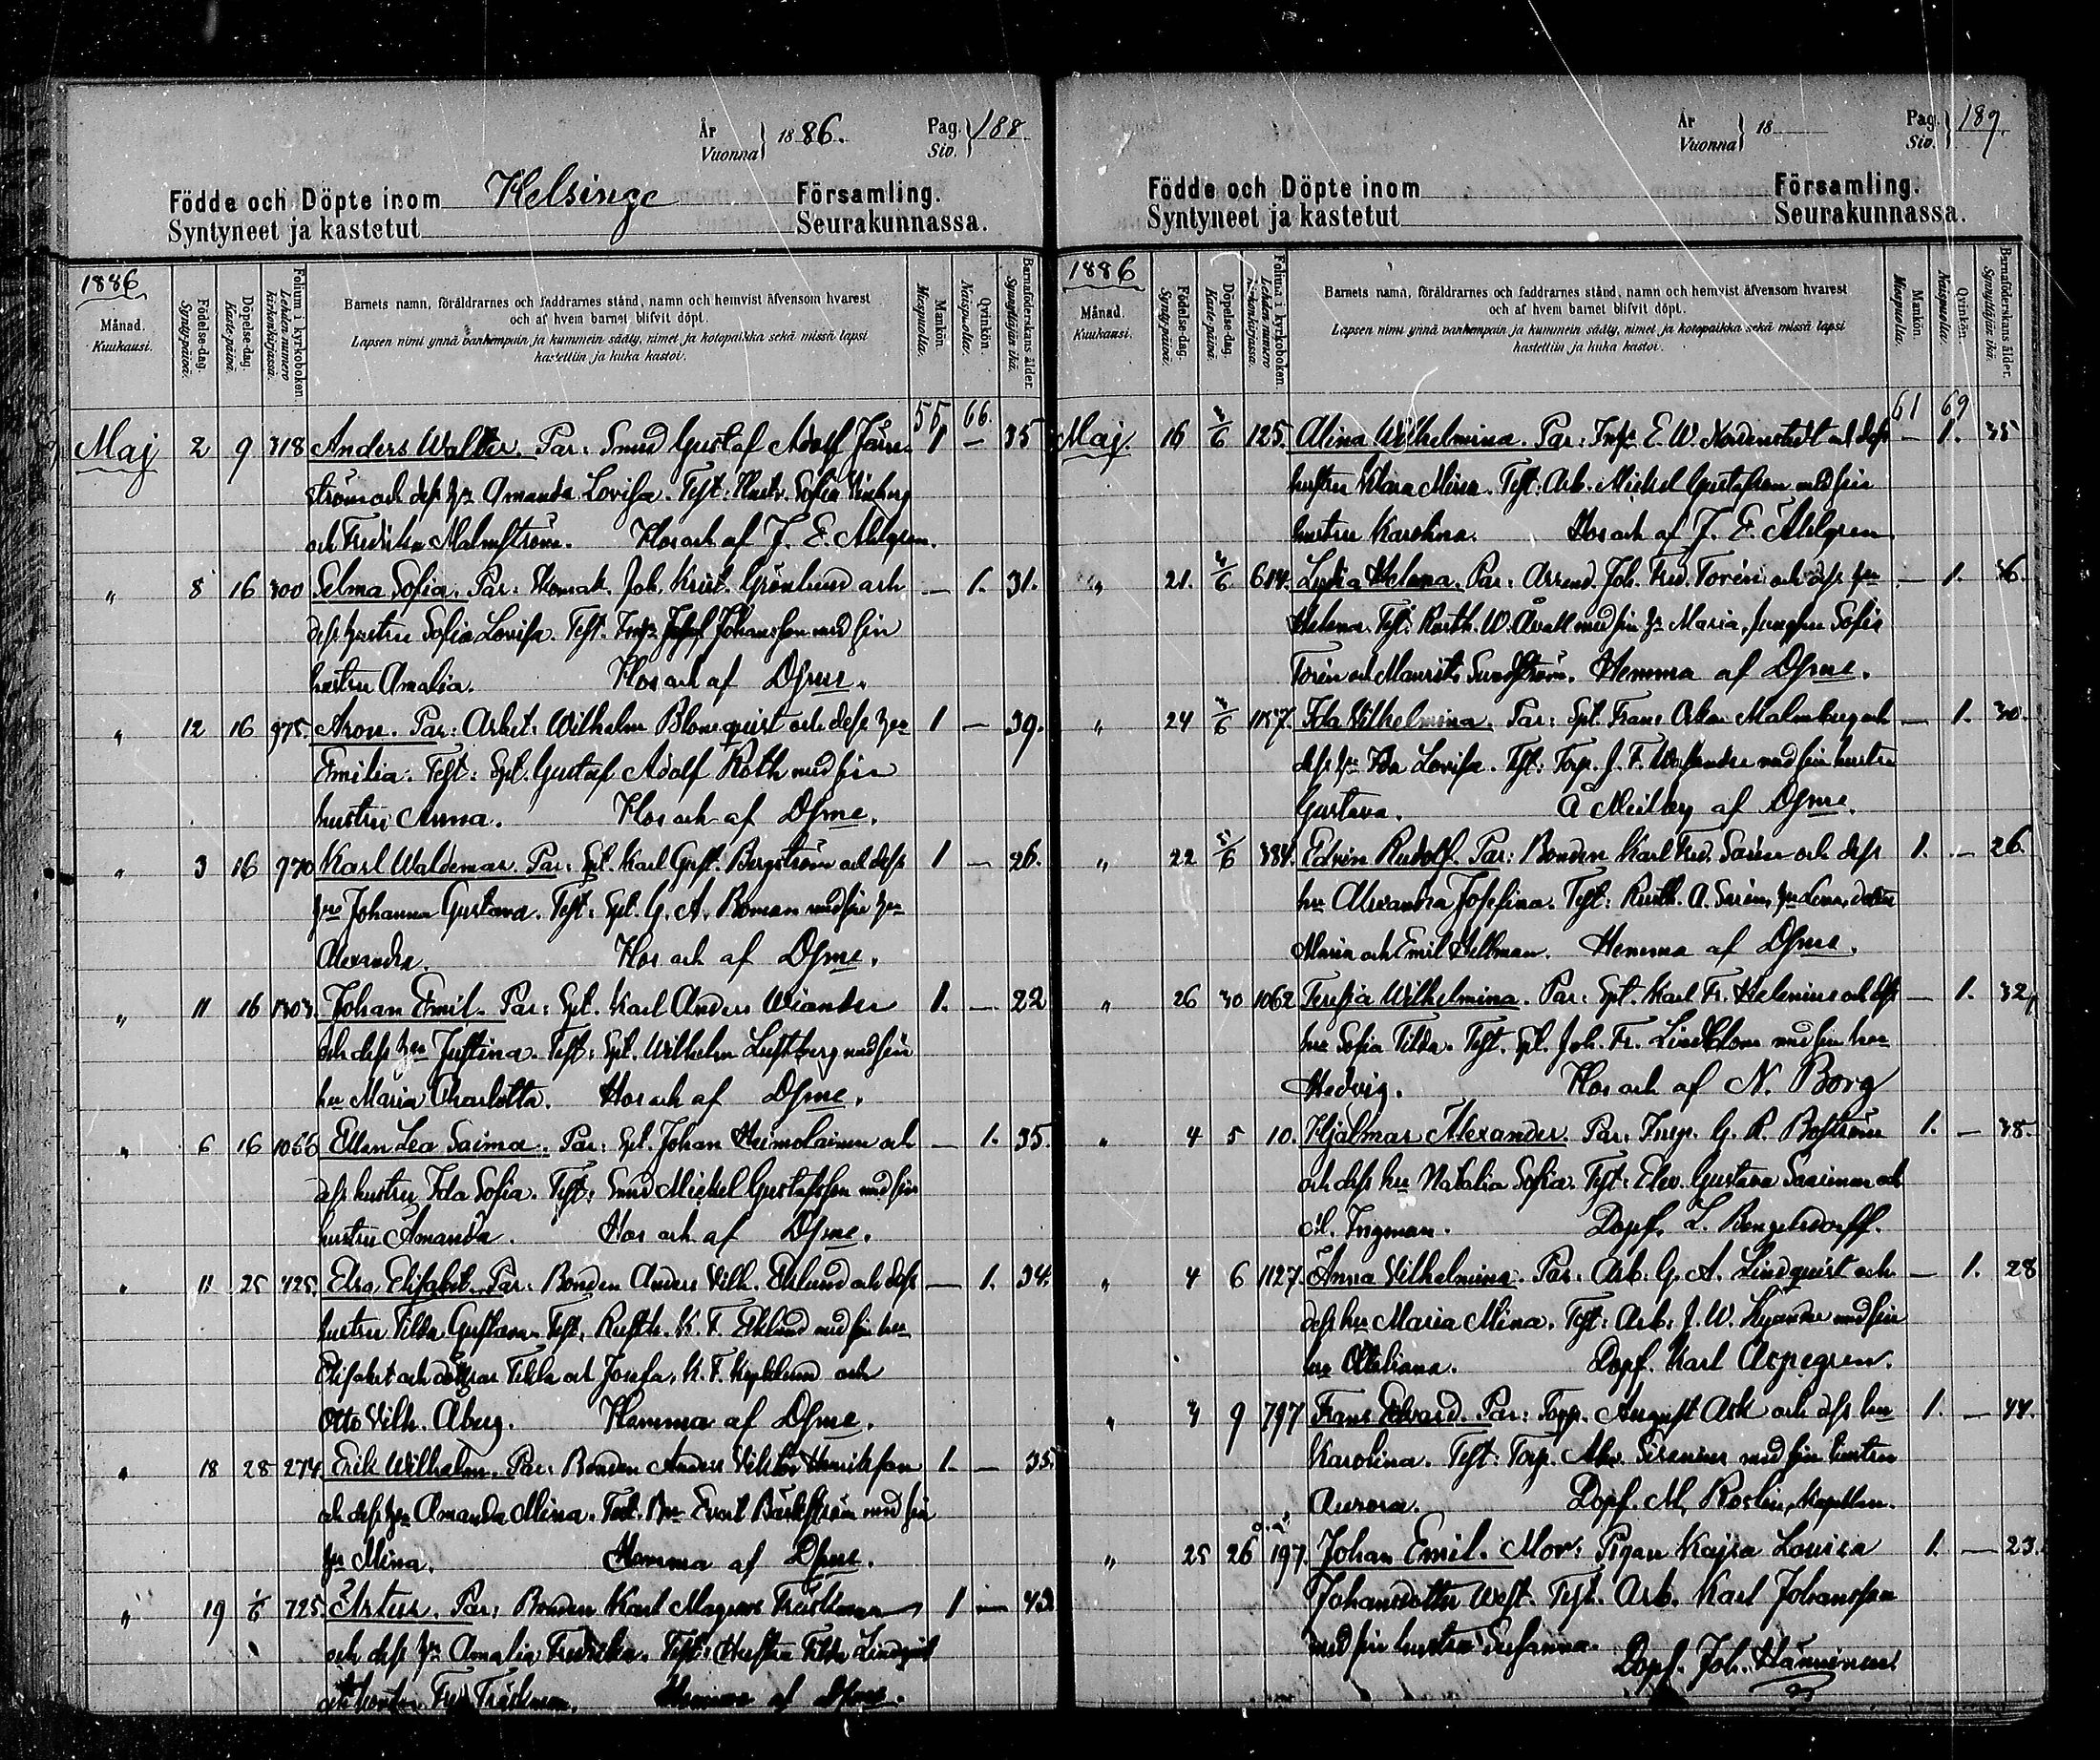 År
Vuonna } 1886.
Pag.
Siv. } 188
Födde och Döpte inom Helsinge Församling.
Syntyneet ja kastetut Seurakunnassa.
1886
Månad.
Kuukausi.
Födelse-dag.
Syntypäivä.
Döpelse-dag.
Kastepäivä.
Folium i kyrkoboken.
Lehden numero kirkonkirjassa.
Barnets namn, föräldrarnes och faddrarnes stånd, namn och hemvist äfvensom hvarest
och af hvem barnet blifvit döpt.
Lapsen nimi ynnä vanhempain ja kummein sääty, nimet ja kotopaikka sekä missä lapsi
kastettiin ja kuka kastoi.
Mankön.
Miespuolia.
Qvinkön.
Naispuolia.
Barnaföderskans ålder.
Synnyttäjän ikä.
55 66.
Maj 2 9 318 Anders Walter. Par: Smed Gustaf Adolf Järn- 1 — 35
ström och dess hu Amanda Lovisa. Test: Hustr. Sofia
och Fredrika Malmström. Hos och af J. E. Ahlgren.
" 8 16 300 Selma Sofia. Par: Skomak. Joh. Krist. Grönlund och — 1. 31.
dess hustru Sofia Lovisa. Test. Johansson med sin
hustru Amalia. Hos och af Dsme.
" 12 16 975. Aron. Par: Arbet: Wilhelm Blomquist och dess hu 1 — 39.
Emilia. Test: Spt. Gustaf Adolf Roth med sin
hustru Anna. Hos och af Dsme.
" 3 16 970 Karl Waldemar. Par: Spt. Karl Gust. Bergström och dess 1 — 26.
hu Johanna Gustava. Test: Spt. G. A. Boman med sin hu
Alexandra. Hos och af Dsme.
" 11 16 1303. Johan Emil. Par: Spt. Karl Anders Wiander 1. — 22
och dess hu Justina. Test: Spt. Wilhelm Luftberg med sin
hu Maria Charlotta. Hos och af Dsme.
" 6 16 1066 Ellen Lea Saima. Par: Spt. Johan Heimolainen och — 1. 35.
dess hustru Ida Sofia. Test: Smed Mickel Gustafsson med sin
hustru Amanda. Hos och af Dsme.
" 11 25 425. Elsa Elisabet. Par: Bonden Anders Vilh. Eklund och dess — 1. 34.
hustru Tilda Gustava. Test. Rusth. K. F. Eklund med sin hu
Elisabet och döttrar Tekla och Josefa, K. F. och
Otto Vilh. Åberg. Hemma af Dsme.
" 18 28 274. Erik Wilhelm. Par: Bonden Anders Viktor Henriksson 1. — 35.
och dess hu Amanda Mina. Test. Bn Evert Bäckström med sin
hu Mina. Hemma af Dsme.
" 19 1/6 725 Artur. Par: Bonden Karl Magnus Träskman 1 — 43
och dess hu Amalia Fredrika. Test: Hustru Tilda Lindqvist
och Fred. Träskman. Hemma af Dsme.
År
Vuonna } 18
Pag.
Siv. } 189.
Födde och Döpte inom Församling.
Syntyneet ja kastetut Seurakunnassa.
1886
Månad.
Kuukausi.
Födelse-dag.
Syntypäivä.
Döpelse-dag.
Kastepäivä.
Folium i kyrkoboken.
Lehden numero kirkonkirjassa.
Barnets namn, föräldrarnes och faddrarnes stånd, namn och hemvist äfvensom hvarest
och af hvem barnet blifvit döpt.
Lapsen nimi ynnä vanhempain ja kummein sääty, nimet ja kotopaikka sekä missä lapsi
kastettiin ja kuka kastoi.
Mankön.
Miespuolia.
Qvinkön.
Naispuolia.
Barnaföderskans ålder.
Synnyttäjän ikä.
61 69
Maj. 16 125. Alina Wilhelmina. Par: E. W. Nordenstedt och dess — 1. 35
hustru Klara Mina. Test: Arb. Mickel Gustafson med sin
hustru Karolina. Hos och af J. E. Ahlgren
" 21. 614. Lydia Helena. Par: Arrend. Joh. Fred. Torén och dess hu — 1. 36.
Helena. Test: Rusth. W. Åvall med sin hu Maria, jungfru Sofia
Torén och Maurits Sundström. Hemma af Dsme.
" 24 1157. Ida Vilhelmina. Par: Spt. Frans Oskar Malmberg och — 1. 30.
dess hu Ida Lovisa. Test: Torp. J. F. med sin hustru
Gustava. Å Meilby af Dsme.
" 22 384. Edvin Rudolf. Par: Bonden Karl Fred. Sarén och dess 1. — 26.
hu Alexandra Josefina. Test: Rusth. A. Sarén, hu Lena, dotter
Maria och Emil Hellman. Hemma af Dsme.
" 26 30 1062 Teresia Wilhelmina. Par: Spt. Karl Fr. Helenius och dess — 1. 32,
hu Sofia Tilda. Test. Spt. Joh. Fr. Lindblom med sin hu
Hedvig. Hos och af N. Borg
" 4 5 10. Hjalmar Alexander. Par: Insp. G. R. Boström 1. — 38.
och dess hu Natalia Sofia. Test: Elev. Gustava Saarinen och
Ingman. Dopf. L. Bengelsdorff.
" 4 6 1127. Anna Vilhelmina. Par: Arb. G. A. Lindquist och — 1. 28
dess hu Maria Mina. Test: Arb. J. W. Kyander med sin
hu Ottiliana. Dopf. Karl Aspegren.
" 3 9 797 Frans Edvard. Par: Torp. August Ask och dess hu 1. — 44.
Karolina. Test: Torp. Alex. Sirenius med sin hustru
Aurora. Dopf. M. Roslin, Kapellan.
" 25 26 197. Johan Emil. Mor: Pigan Kajsa Lovisa 1. — 23.
Johansdotter West. Test. Arb. Karl Johansson
med sin hustru Susanna. Dopf. Joh. Hänninen